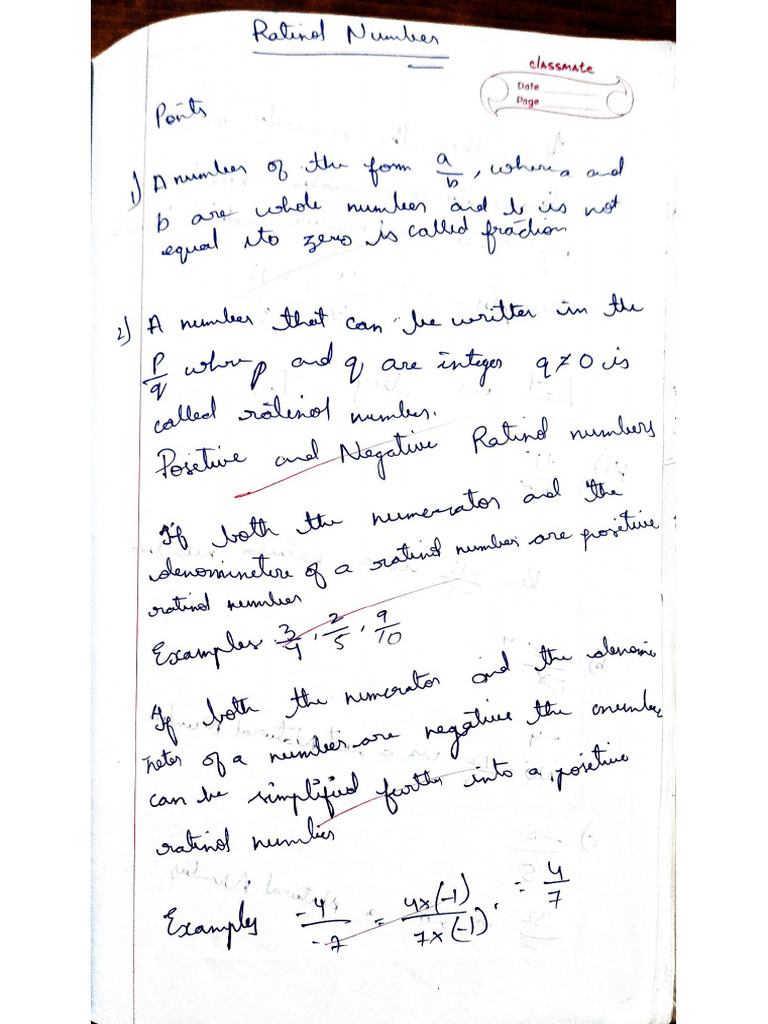 Ratinol Number
classmate
Date
Page
Points
1) A number of the form a/b, where a and
b are whole number and b is not
equal to zero is called fraction
2) A number that can be written in the
p/q where p and q are integer q ≠ 0 is
called ratinol number.
Posetive and Negative Ratinol numbers
If both the numerator and the
denominetere of a ratinol number are positive
ratinol number
Examples 3/4, 2/5, 9/10
If both the numerator and the denomi
neter of a number are negative the number
can be simplified further into a posetive
ratinol number
Examples -4/-7 = 4x(-1)/7x(-1) = 4/7